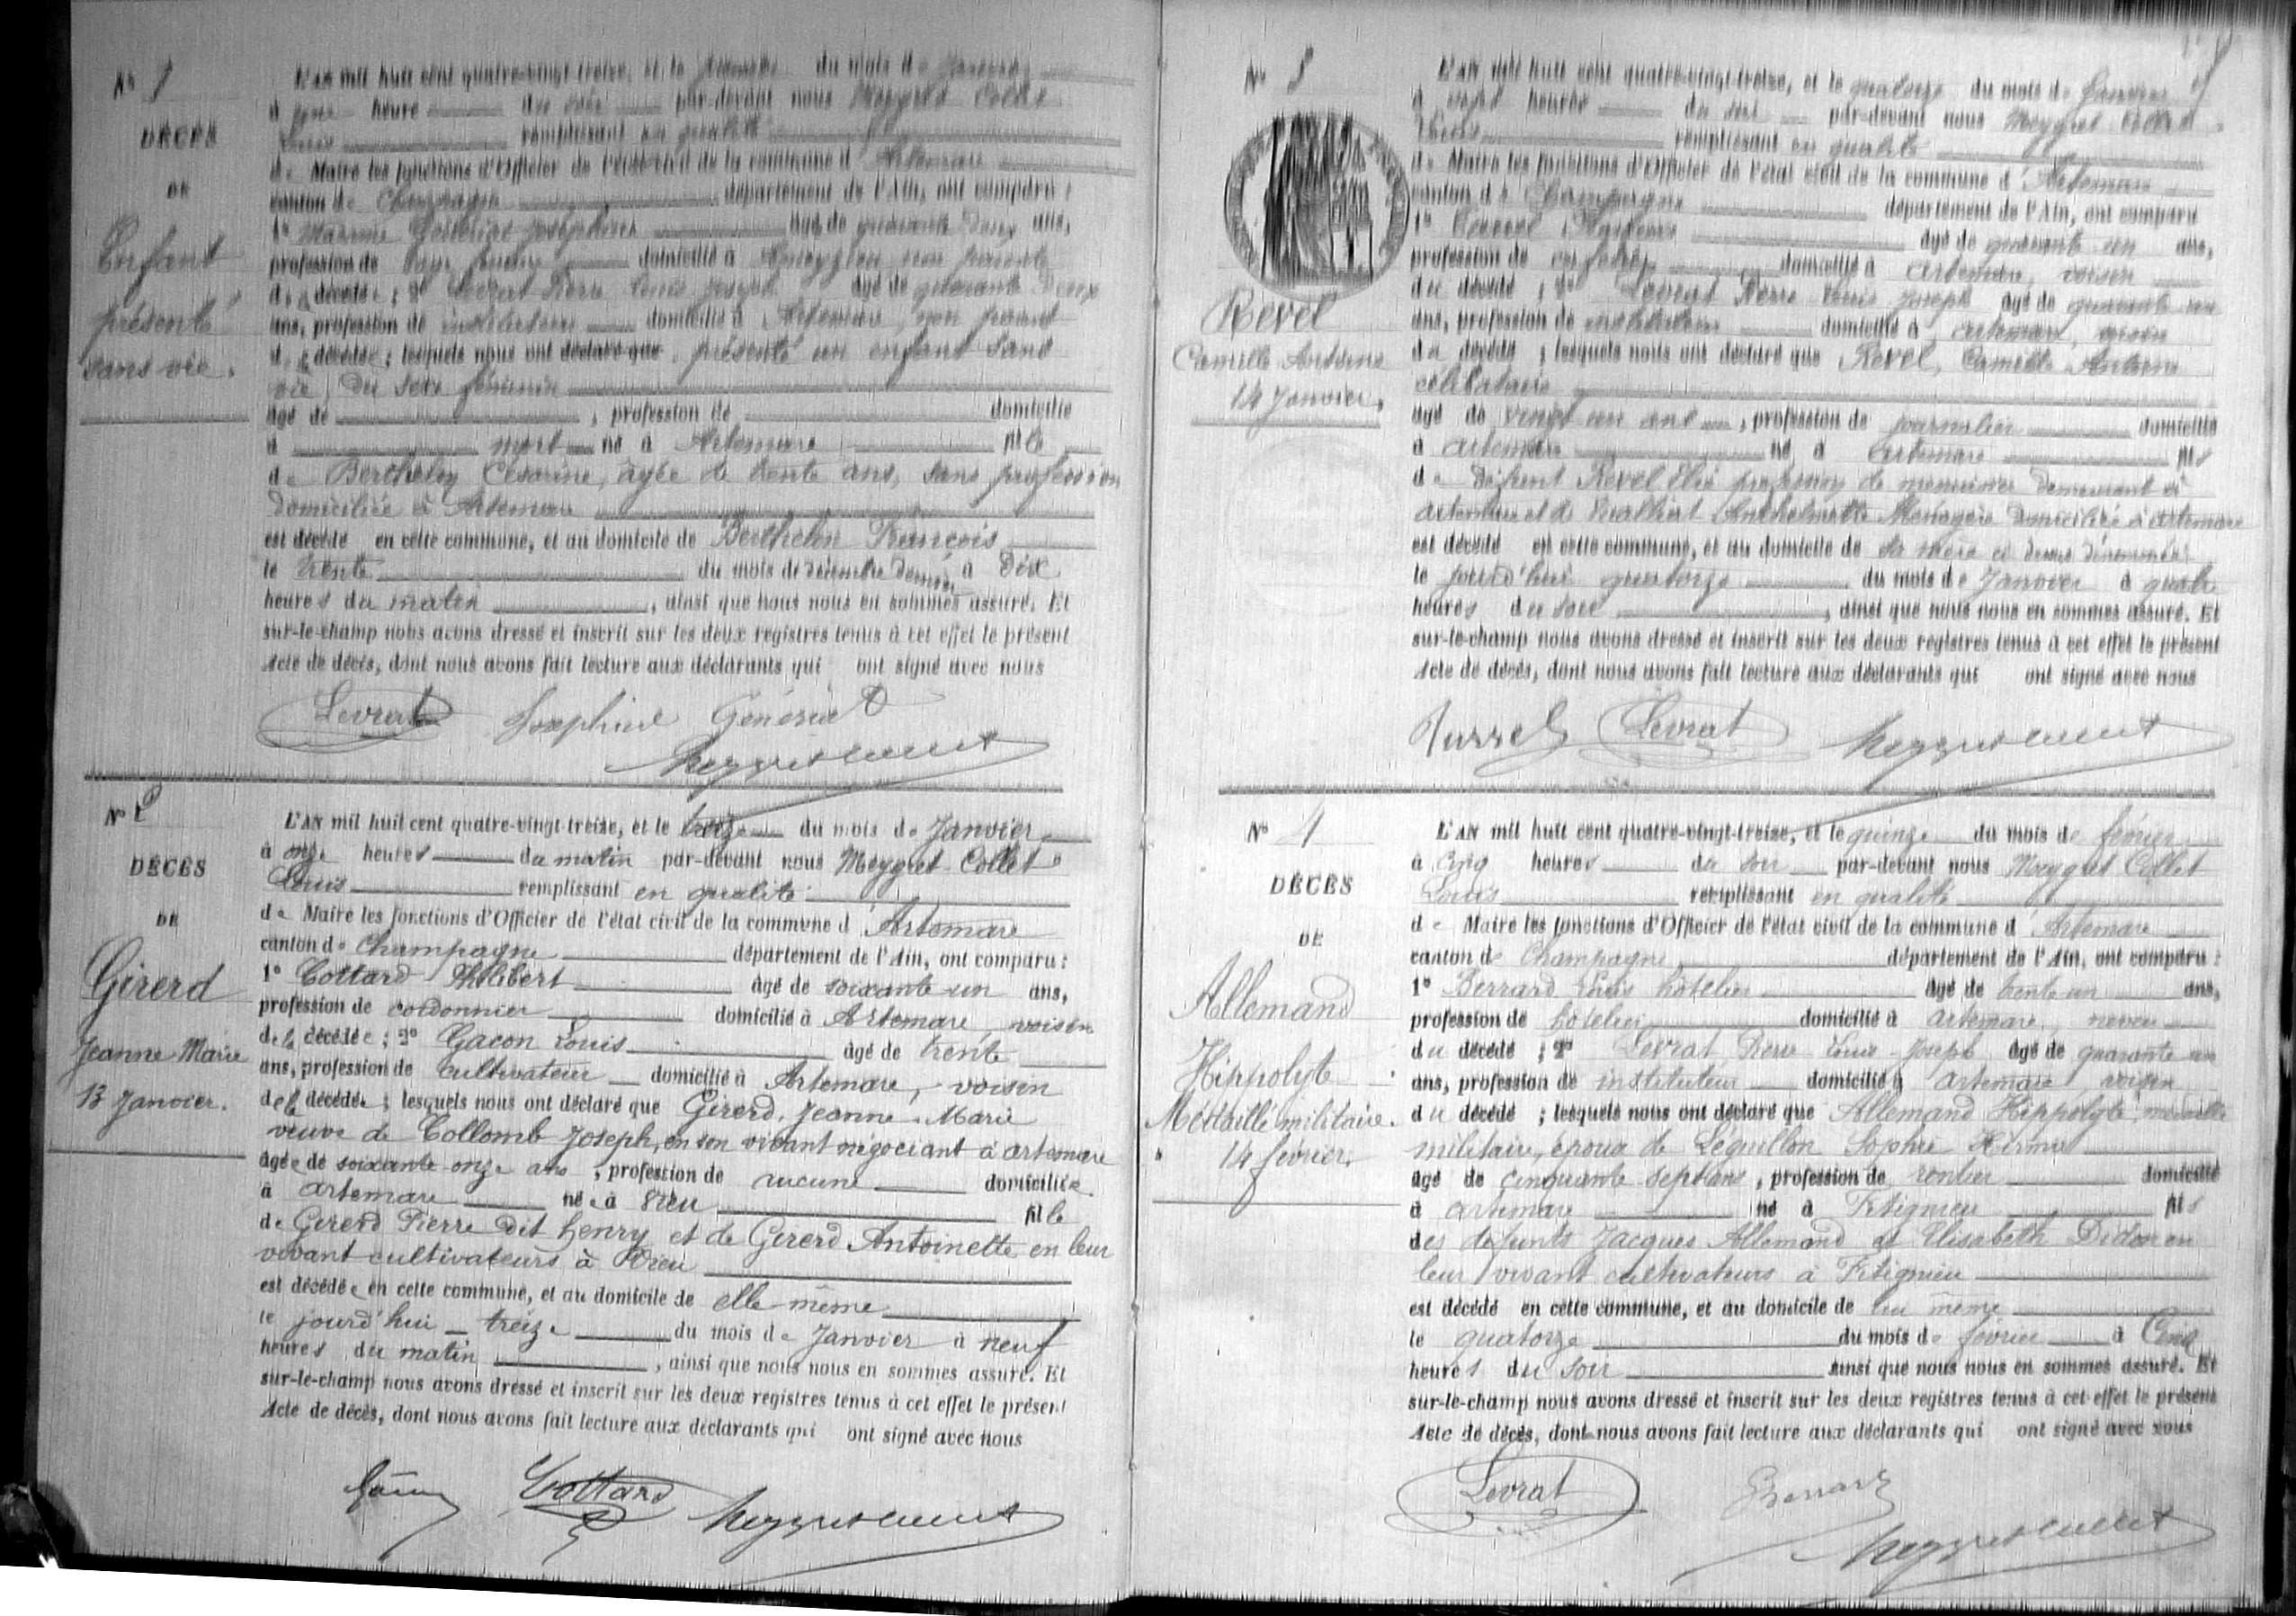 N° 1
DÉCÈS
DE
Enfant
présenté
sans vie.
L'AN mil huit cent quatre-vingt-treize, et le premier du mois de Janvier
à une heure du soir par-devant nous Meygret Collet
Louis remplissant en qualité
de Maire les fonctions d'Officier de l'état civil de la commune d'Artemare
canton de Champagne département de l'Ain, ont comparu :
1° Madame Joséphine âgée de quarante deux ans,
profession de sage femme domicilié à non parente
de la décédée ; 2° Levrat Pierre Louis Joseph âgé de quarante
ans, profession de instituteur domicilié à Artemare, non parent
de la décédée ; lesquels nous ont déclaré que présenté un enfant sans
vie, du sexe féminin
âgé de , profession de domicilié
à mort né à Artemare fille
de Berthelon Césarine, âgée de trente ans, sans profession
domiciliée à Artemare
est décédé en cette commune, et au domicile de Berthelon François
le trente du mois de décembre dernier à Dix
heures du matin , ainsi que nous nous en sommes assuré. Et
sur-le-champ nous avons dressé et inscrit sur les deux registres tenus à cet effet le présent
Acte de décès, dont nous avons fait lecture aux déclarants qui ont signé avec nous
Levrat Joséphine
Meygret Collet
N° 2
DÉCÈS
DE
Girerd
Jeanne Marie
13 Janvier.
L'AN mil huit cent quatre-vingt-treize, et le treize du mois de Janvier
à onze heures du matin par-devant nous Meygret-Collet
Louis remplissant en qualité
de Maire les fonctions d'Officier de l'état civil de la commune d'Artemare
canton de Champagne département de l'Ain, ont comparu :
1° Cottard Philibert âgé de soixante-un ans,
profession de cordonnier domicilié à Artemare, voisin
de la décédée ; 2° Gacon Louis âgé de trente
ans, profession de cultivateur domicilié à Artemare, voisin
de la décédée ; lesquels nous ont déclaré que Girerd, Jeanne-Marie
veuve de Collomb Joseph, en son vivant négociant à artemare
âgée de soixante-onze ans , profession de aucune domiciliée
à artemare née à Vieu fille
de Girerd Pierre dit henry et de Girerd Antoinette en leur
vivant cultivateurs à Vieu
est décédée en cette commune, et au domicile de elle même
le jourd'hui treize du mois de Janvier à neuf
heures du matin , ainsi que nous nous en sommes assuré. Et
sur-le-champ nous avons dressé et inscrit sur les deux registres tenus à cet effet le présent
Acte de décès, dont nous avons fait lecture aux déclarants qui ont signé avec nous
Gacon Cottard Meygret Collet
N° 3
Revel
Camille Antoine
14 Janvier.
L'AN mil huit cent quatre-vingt-treize, et le quatorze du mois de Janvier
à sept heures du soir par-devant nous Meygret Collet
Louis remplissant en qualité
de Maire les fonctions d'Officier de l'état civil de la commune d'Artemare
canton de Champagne département de l'Ain, ont comparu
1° âgé de quarante un ans,
profession de domicilié à Artemare, voisin
du décédé ; 2° Levrat Pierre Louis Joseph âgé de quarante un
ans, profession de instituteur domicilié à artemare, voisin
du décédé ; lesquels nous ont déclaré que Revel, Camille Antoine
célibataire
âgé de vingt un ans , profession de journalier domicilié
à artemare né à artemare fils
de défunt Revel profession de menuisier demeurant à
artemare et de Anthelmette Ménagère domiciliée à artemare
est décédé en cette commune, et au domicile de sa mère ci dessus dénommée
le jourd'hui quatorze du mois de Janvier à quatre
heures du soir , ainsi que nous nous en sommes assuré. Et
sur-le-champ nous avons dressé et inscrit sur les deux registres tenus à cet effet le présent
Acte de décès, dont nous avons fait lecture aux déclarants qui ont signé avec nous
Levrat Meygret Collet
N° 4
DÉCÈS
DE
Allemand
Hippolyte
Médaillé militaire.
14 février.
L'AN mil huit cent quatre-vingt-treize, et le quinze du mois de février
à cinq heures du soir par-devant nous Meygret Collet
Louis remplissant en qualité
de Maire les fonctions d'Officier de l'état civil de la commune d'Artemare
canton de Champagne département de l'Ain, ont comparu :
1° Berrard Louis hotelier âgé de trente un ans,
profession de hotelier domicilié à artemare, neveu
du décédé ; 2° Levrat Pierre Louis-Joseph âgé de quarante un
ans, profession de instituteur domicilié à artemare, voisin
du décédé ; lesquels nous ont déclaré que Allemand Hippolyte, médaillé
militaire, époux de Léguillon Sophie
âgé de cinquante-sept ans , profession de rentier domicilié
à artemare né à Fitignieu fils
des défunts Jacques Allemand et Elisabeth Didon en
leur vivant cultivateurs à Fitignieu
est décédé en cette commune, et au domicile de lui même
le quatorze du mois de février à Cinq
heures du soir ainsi que nous nous en sommes assuré. Et
sur-le-champ nous avons dressé et inscrit sur les deux registres tenus à cet effet le présent
Acte de décès, dont nous avons fait lecture aux déclarants qui ont signé avec nous
Levrat Berrard
Meygret Collet